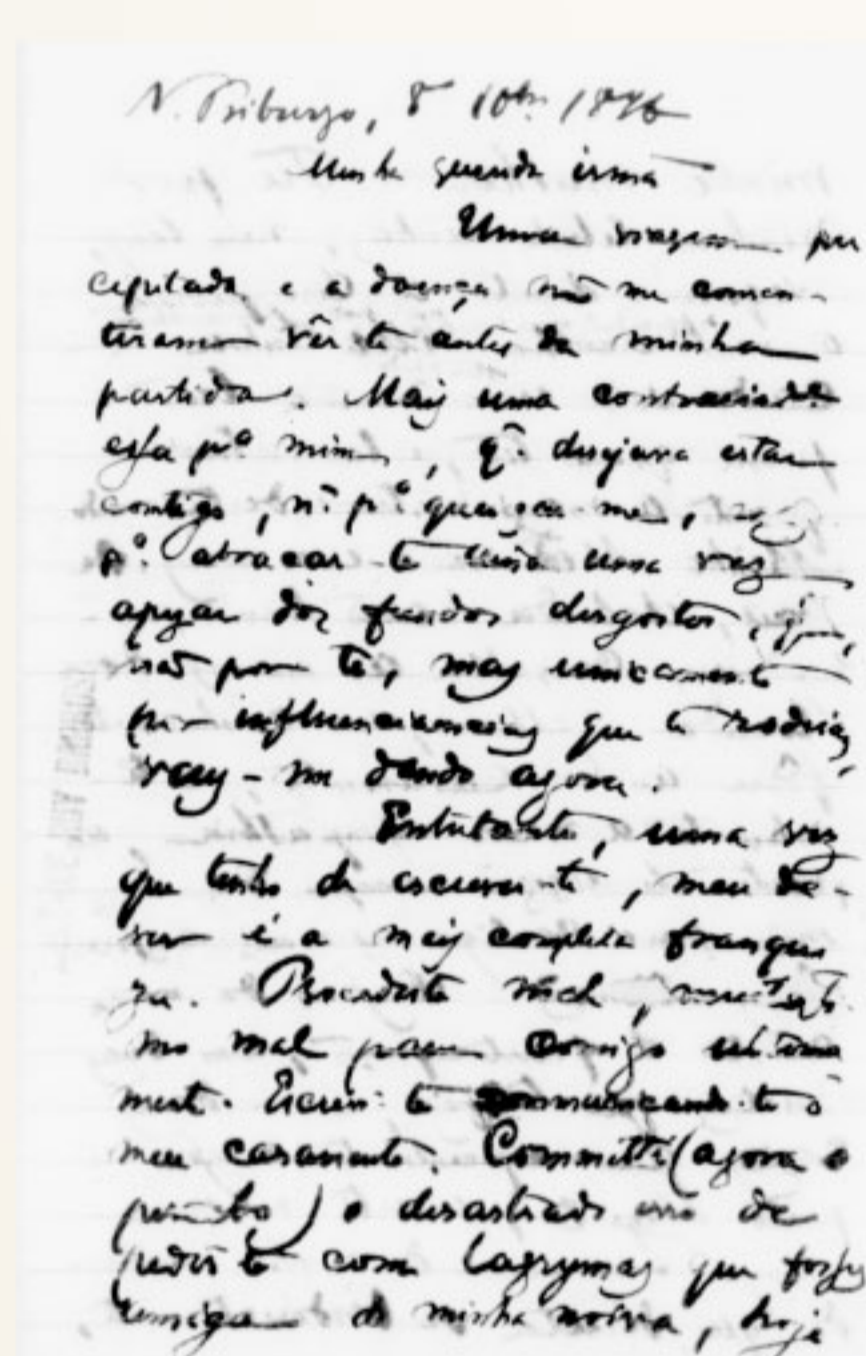 N. Friburgo, 8 10br. 1896
Minha querida irmã
Uma viagem pre
cipitada e a doença não me consen-
tiram vêr-te antes da minha
partida. Mais uma contrariedade
essa pª mim, q. desejava estar
comtigo, nº pª queixar-me,
pª abraçar-te uma vez
apezar dos fundos desgostos, que,
não por ti, mas unicamente
por influencias que te rodeiam,
vens-me dando agora.
Entretanto, uma vez
que tenho de escrever-te, meu de-
ver é a mais completa franque
za. Procedeste mal, muitissi
mo mal para comigo ultima
mente. Escrevi-te communicando-te o
meu casamento. Committi (agora o
percebo) o desastrado erro de
pedir-te com lagrymas que fosses
amiga de minha noiva, hoje